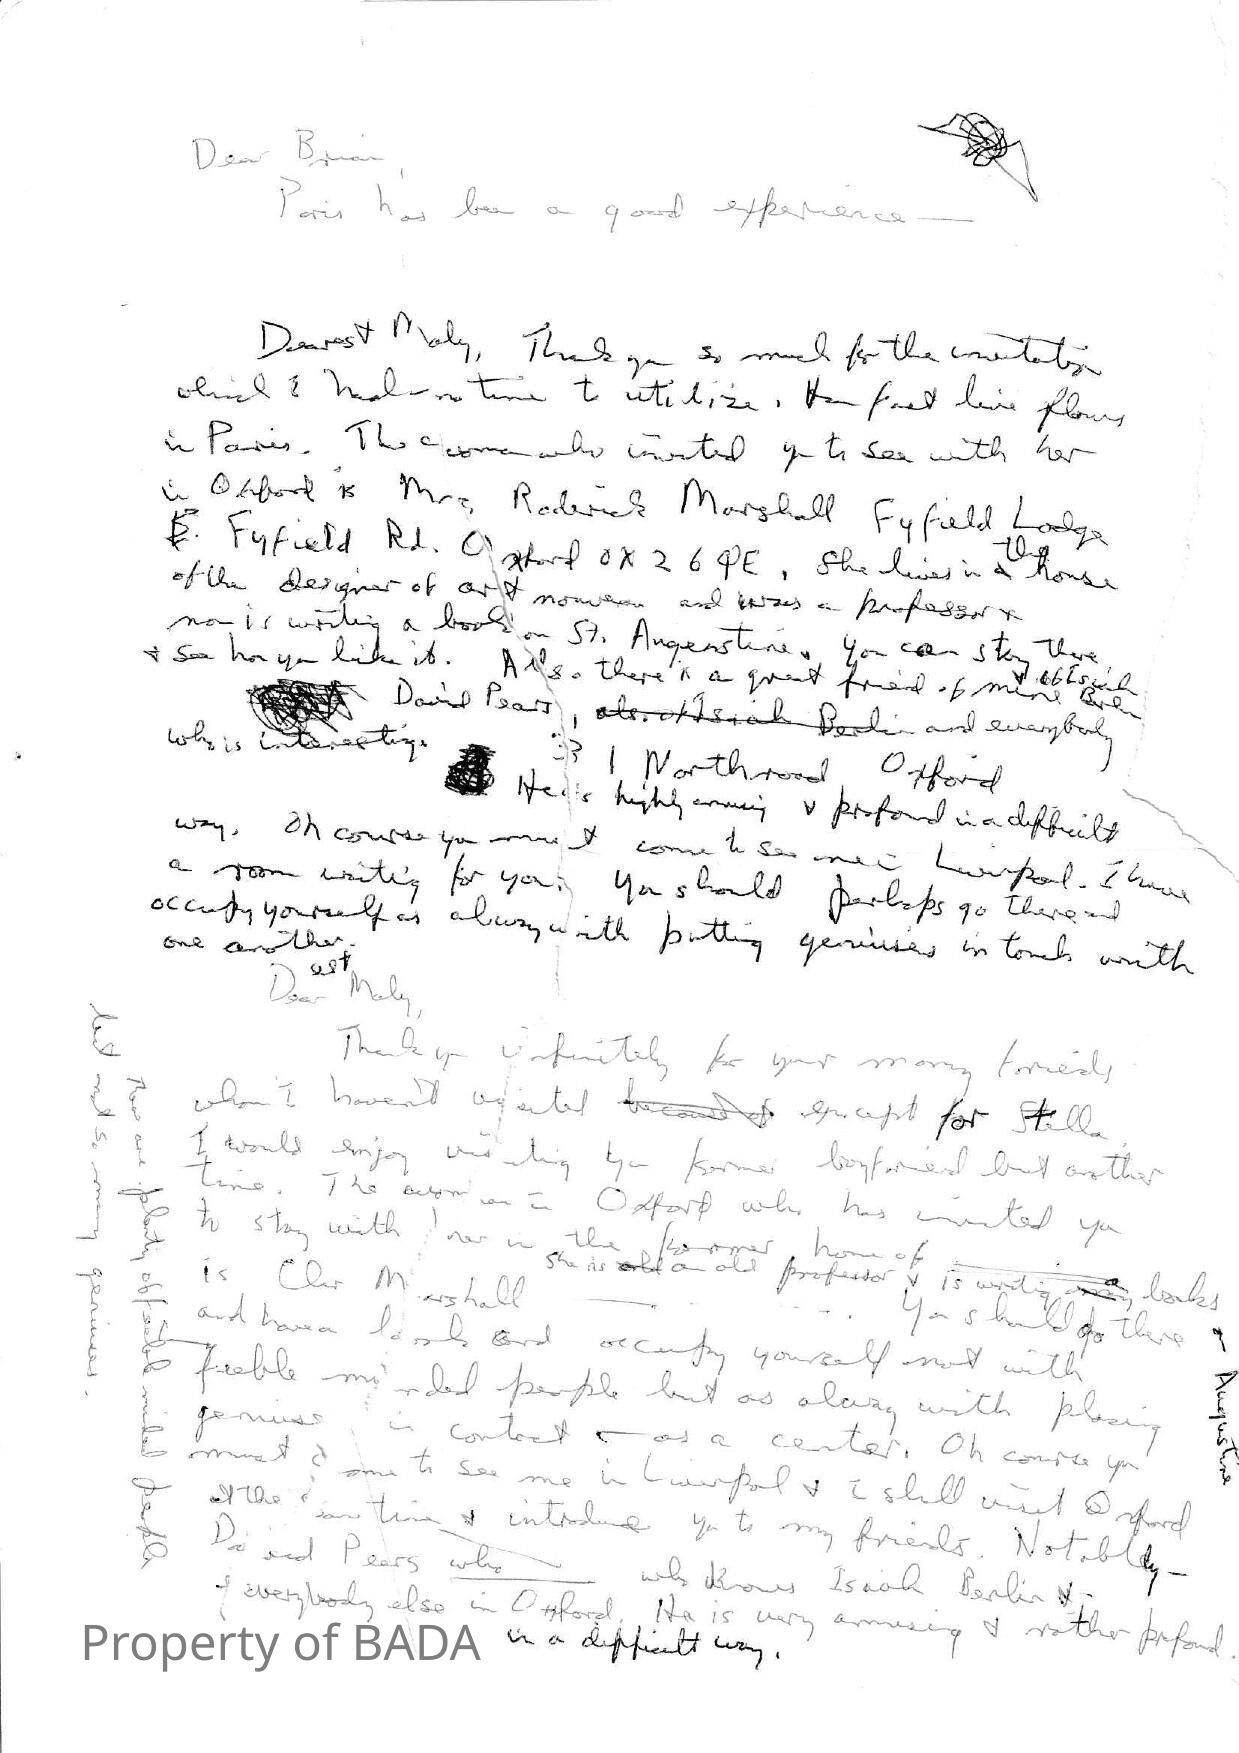 Dear Brian,
Paris has been a good experience —
Dearest Maly, Thank you so much for the invitation
which I had no time to utilize. How fast time flows
in Paris. The woman who invited you to see with her
in Oxford is Mrs. Roderick Marshall Fyfield Lodge
Fyfield Rd. Oxford OX2 6QE, She lives in the house
of the designer of art nouveau and was a professor &
now is writing a book on St. Augustine. You can stay there
& see how you like it. Also there is a great friend of mine & of Isaiah Berlin
David Pears, also of Isaiah Berlin and everybody
who is interesting. 1 Northmoor Oxford
He is highly amusing & profound in a difficult
way. Of course you must come to see me in Liverpool. I have
a room waiting for you. You should perhaps go there and
occupy yourself as always with putting geniuses in touch with
one another.
Dearest Maly,
Thank you infinitely for your many friends
whom I haven't visited because of except for Stella.
I would enjoy visiting your former boyfriend but another
time. The woman in Oxford who has invited you
to stay with her in the former home of
is Clar Marshall She is an old professor & is writing a books on Augustine
You should go there
and have a look and occupy yourself not with
feeble minded people but as always with placing
geniuses in contact — as a center. Of course you
must come to see me in Liverpool & I shall visit Oxford
at the same time & introduce you to my friends. Notably —
David Pears who who knows Isaiah Berlin &
everybody else in Oxford. He is very amusing & rather profound
in a difficult way.
There are plenty of feeble minded people
but not so many geniuses.
Property of BADA